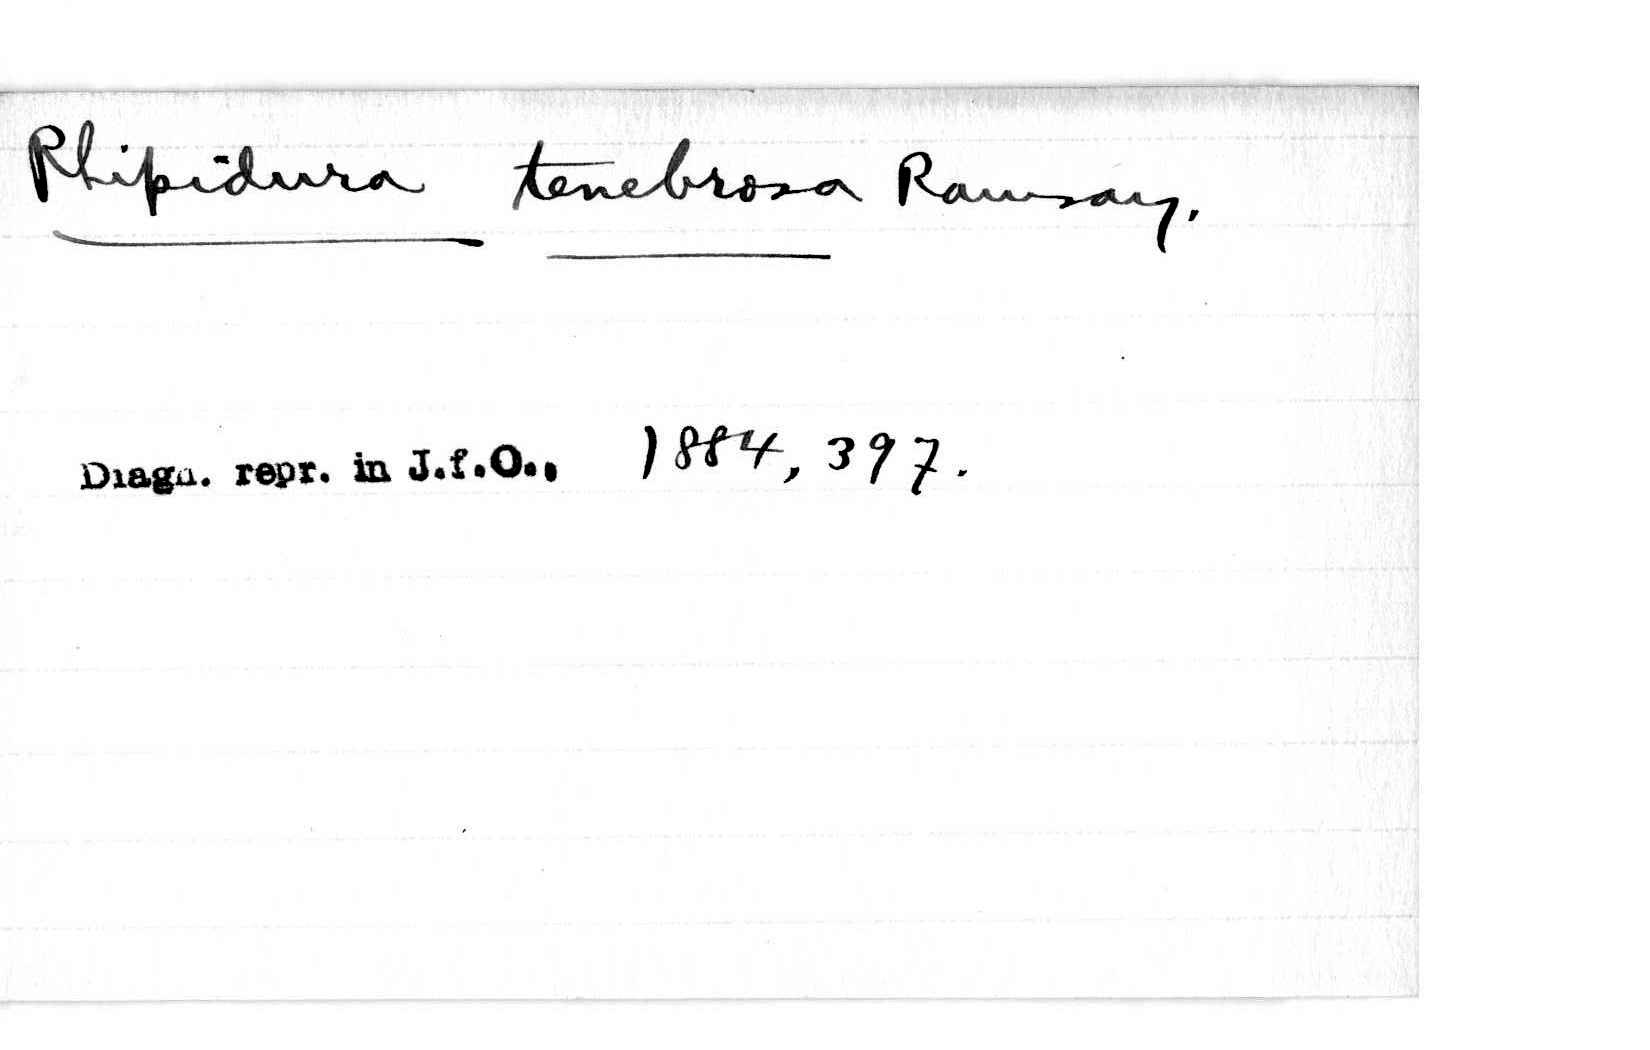 Rhipidura tenebrosa Ramsay.
Diagn. repr. in J.f.O., 1884, 397.